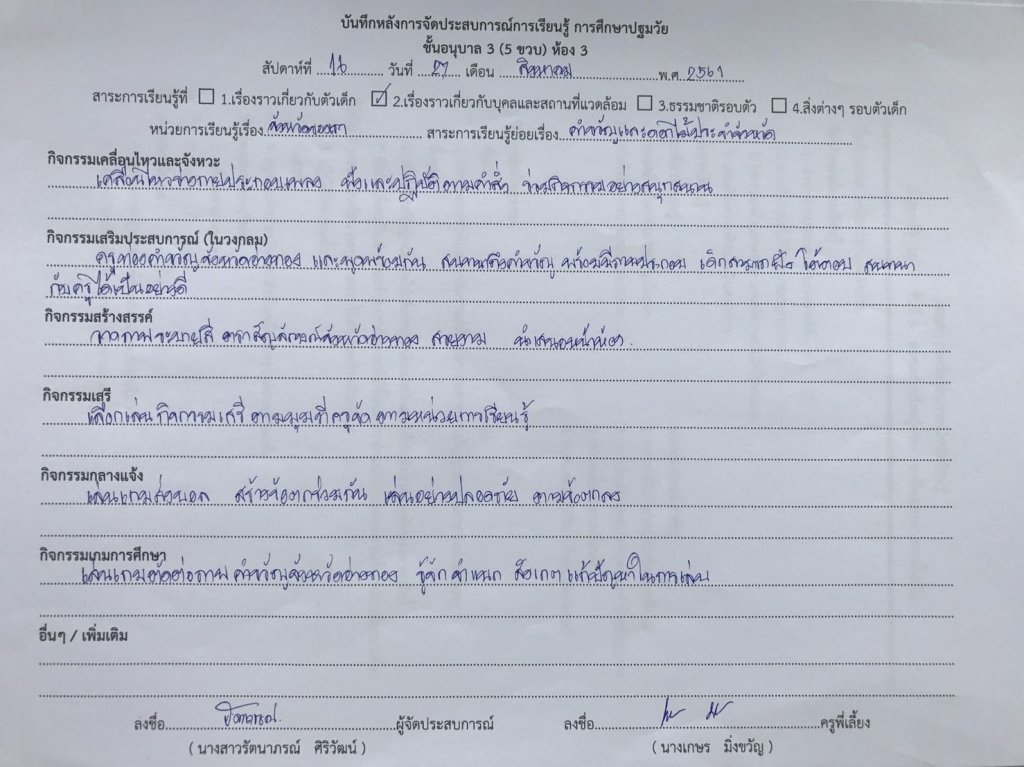 บันทึกหลังการจัดประสบการณ์การเรียนรู้ การศึกษาปฐมวัย
ชั้นอนุบาล 3 (5 ขวบ) ห้อง 3
สัปดาห์ที่ 16 วันที่ 27 เดือน สิงหาคม พ.ศ. 2561
สาระการเรียนรู้ที่ ☐ 1.เรื่องราวเกี่ยวกับตัวเด็ก ☑ 2.เรื่องราวเกี่ยวกับบุคลและสถานที่แวดล้อม ☐ 3.ธรรมชาติรอบตัว ☐ 4.สิ่งต่างๆ รอบตัวเด็ก
หน่วยการเรียนรู้เรื่อง จังหวัดของเรา สาระการเรียนรู้ย่อยเรื่อง คำขวัญและดอกไม้ประจำจังหวัด
กิจกรรมเคลื่อนไหวและจังหวะ
เคลื่อนไหวร่างกายประกอบเพลง ฟังและปฏิบัติตามคำสั่ง ร่วมกิจกรรมอย่างสนุกสนาน
กิจกรรมเสริมประสบการณ์ (ในวงกลม)
ครูท่องคำขวัญจังหวัดอ่างทอง และพูดพร้อมกัน สนทนาถึงคำขวัญ พร้อมมีภาพประกอบ เด็กสามารถ โต้ตอบ สนทนา
กับครูได้เป็นอย่างดี
กิจกรรมสร้างสรรค์
วาดภาพระบายสี ตราสัญลักษณ์จังหวัดอ่างทอง สวยงาม นำเสนอหน้าห้อง.
กิจกรรมเสรี
เลือกเล่นกิจกรรมเสรี ตามมุมที่ครูจัด ตามหน่วยการเรียนรู้
กิจกรรมกลางแจ้ง
เล่นเกมส่งบอล สร้างข้อตกลงร่วมกัน เล่นอย่างปลอดภัย ตามข้อตกลง
กิจกรรมเกมการศึกษา
เล่นเกมตัดต่อภาพคำขวัญจังหวัดอ่างทอง รู้จักจำแนก สังเกต แก้ปัญหาในการเล่น
อื่นๆ / เพิ่มเติม
ลงชื่อ รัตนาภรณ์ ผู้จัดประสบการณ์ ลงชื่อ ครูพี่เลี้ยง
( นางสาวรัตนาภรณ์ ศิริวัฒน์ ) ( นางเกษร มิ่งขวัญ )